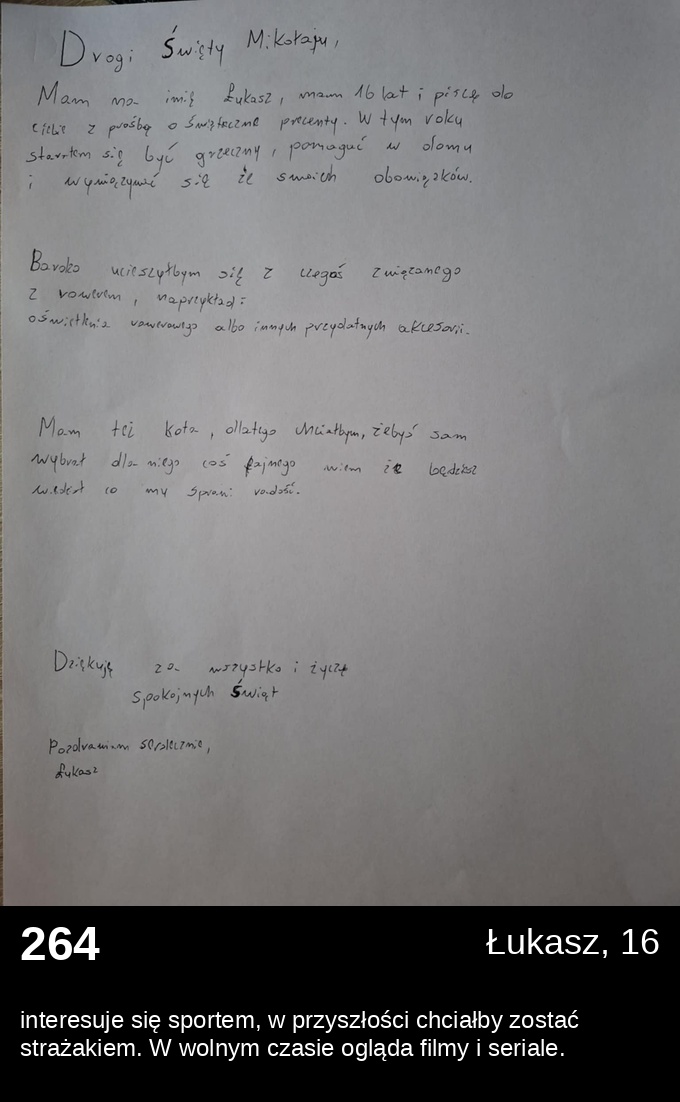 Drogi Święty Mikołaju,
Mam na imię Łukasz, mam 16 lat i piszę do
ciebie z prośbą o świąteczne prezenty. W tym roku
starałem się być grzeczny, pomagać w domu
i wywiązywać się ze swoich obowiązków.
Bardzo ucieszyłbym się z czegoś związanego
z rowerem, naprzykład:
oświetlenia rowerowego albo innych przydatnych akcesorii.
Mam też kota, dlatego chciałbym, żebyś sam
wybrał dla niego coś fajnego wiem że będziesz
wiedział co mu sprawi radość.
Dziękuję za wszystko i życzę
spokojnych Świąt
Pozdrawiam serdecznie,
Łukasz
264
Łukasz, 16
interesuje się sportem, w przyszłości chciałby zostać
strażakiem. W wolnym czasie ogląda filmy i seriale.